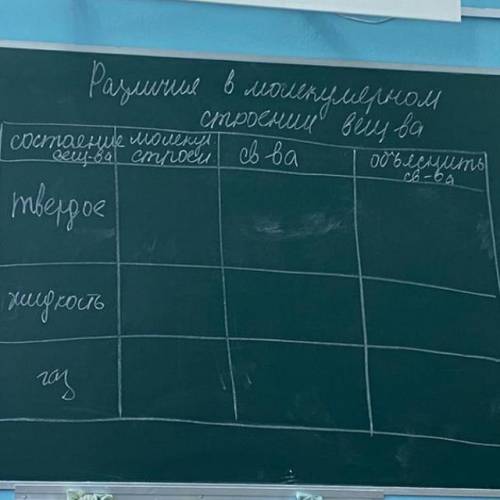 Различия в молекулярном
строении вещ-ва
состояние вещ-ва
молекул строен
св-ва
объяснить св-ва
твердое
жидкость
газ